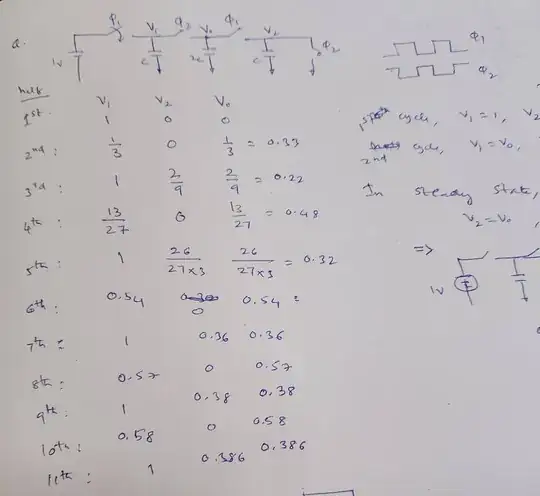 Q.
ϕ1 V1 ϕ2 V0 ϕ1 V2
ϕ2
1v C 2C C
ϕ1
ϕ2
half
V1 V2 V0
1st. 1 0 0
2nd : 1/3 0 1/3 = 0.33
3rd : 1 2/9 2/9 = 0.22
4th : 13/27 0 13/27 = 0.48
5th : 1 26/27×3 26/27×3 = 0.32
6th : 0.54 0 0.54 =
7th : 1 0.36 0.36
8th : 0.57 0 0.57
9th : 1 0.38 0.38
10th : 0.58 0 0.58
11th : 1 0.386 0.386
cycle, V1 = 1, V2
2nd cycle, V1 = V0,
In steady state,
V2 = V0,
⇒
1v